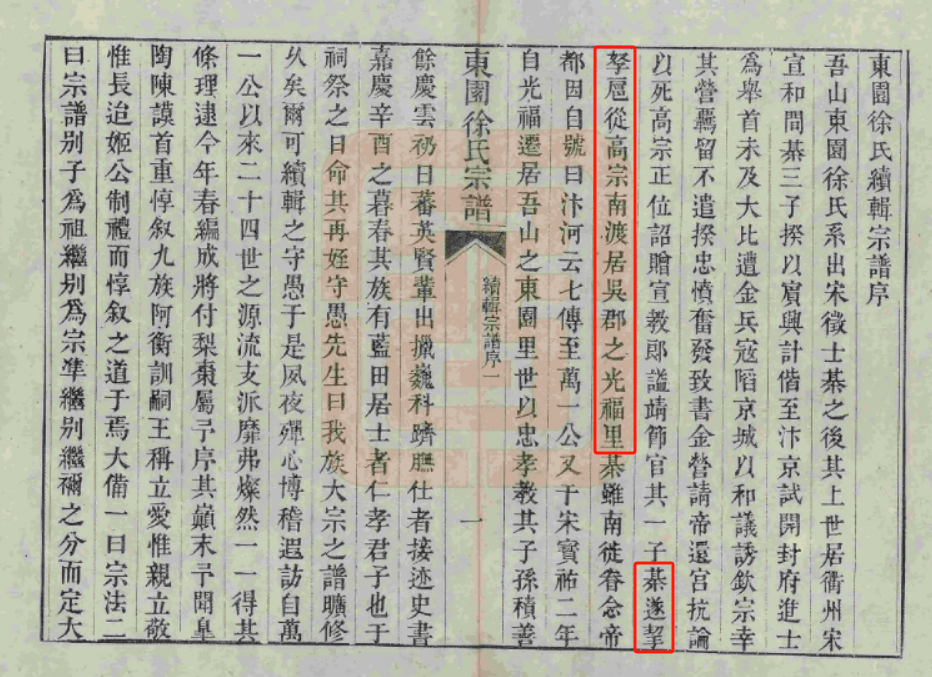 東園徐氏續輯宗譜序
吾山東園徐氏系出宋徵士綦之後其上世居衢州宋
宣和間綦三子揆以賓興計偕至汴京試開封府進士
為舉首未及大比遭金兵寇陷京城以和議誘欽宗幸
其營羈留不遣揆忠憤奮發致書金營請帝還宮抗論
以死高宗正位詔贈宣教郎謚靖節官其一子綦遂挈
孥扈從高宗南渡居吳郡之光福里綦雖南徙眷念帝
都因自號曰汴河云七傳至萬一公又于宋寶祐二年
自光福遷居吾山之東園里世以忠孝教其子孫積善
東園徐氏宗譜
續輯宗譜序一
一
餘慶雲礽日蕃英賢輩出擢巍科躋膴仕者接迹史書
嘉慶辛酉之暮春其族有藍田居士者仁孝君子也于
祠祭之日命其再姪守愚先生曰我族大宗之譜曠修
久矣爾可續輯之守愚于是夙夜殫心博稽遐訪自萬
一公以來二十四世之源流支派靡弗燦然一一得其
條理逮今年春編成將付梨棗屬予序其巔末予聞皐
陶陳謨首重惇叙九族阿衡訓嗣王稱立愛惟親立敬
惟長迨姬公制禮而惇叙之道于焉大備一曰宗法二
曰宗譜別子為祖繼別為宗準繼別繼禰之分而定大